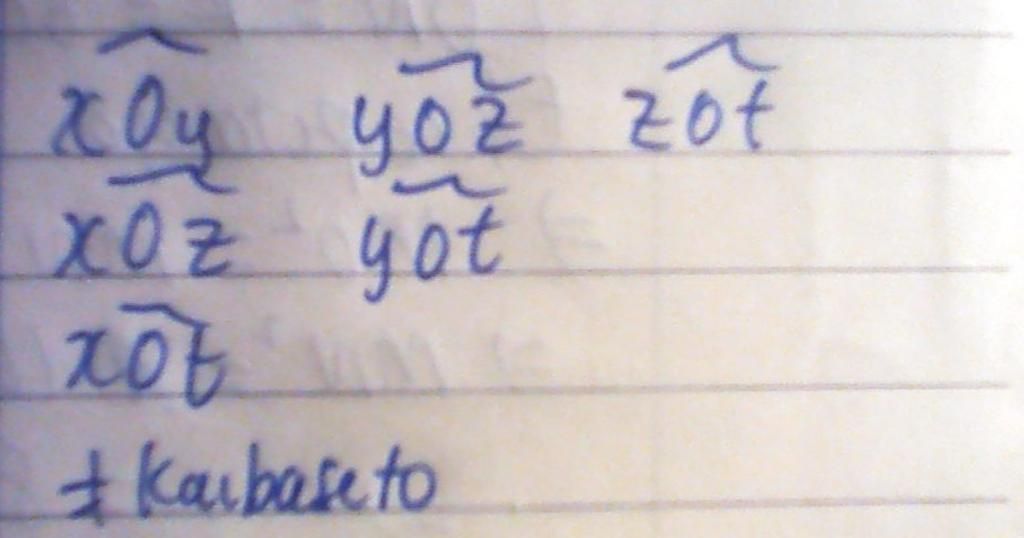 x͡Oy y͡Oz z͡Ot
x͡Oz y͡Ot
x͡Ot
± Kaibaseto